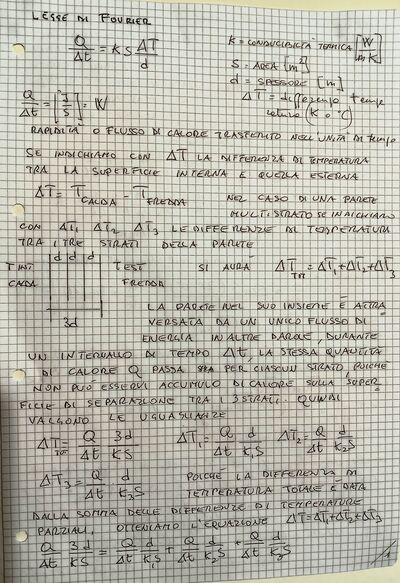 LEGGE DI FOURIER
Q/Δt = K S ΔT/d
K = CONDUCIBILITÀ TERMICA [W/m K]
S = AREA [m²]
d = SPESSORE [m]
ΔT = differenza tempe
ratura (K o °C)
Q/Δt = [J/S] = W
RAPIDITÀ O FLUSSO DI CALORE TRASFERITO NELL'UNITÀ DI tempo
SE INDICHIAMO CON ΔT LA DIFFERENZA DI TEMPERATURA
TRA LA SUPERFICIE INTERNA E QUELLA ESTERNA
ΔT = T CALDA - T FREDDA NEL CASO DI UNA PARETE
MULTISTRATO SE INDICHIAMO
CON ΔT1 ΔT2 ΔT3 LE DIFFERENZE DI TEMPERATURA
TRA I TRE STRATI DELLA PARETE
d d d
T INT T EST SI AVRÀ ΔT TOT = ΔT1 + ΔT2 + ΔT3
CALDA FREDDA
3d
LA PARETE NEL SUO INSIEME È ATTRA
VERSATA DA UN UNICO FLUSSO DI
ENERGIA IN ALTRE PAROLE, DURANTE
UN INTERVALLO DI TEMPO Δt, LA STESSA QUANTITÀ
DI CALORE Q PASSA PER CIASCUN STRATO, POICHÉ
NON PUÒ ESSERVI ACCUMULO DI CALORE SULLA SUPER
FICIE DI SEPARAZIONE TRA I 3 STRATI. QUINDI
VALGONO LE UGUAGLIANZE
ΔT TOT = Q/Δt 3d/KS ΔT1 = Q/Δt d/KS ΔT2 = Q/Δt d/K2S
ΔT3 = Q/Δt d/K3S POICHÉ LA DIFFERENZA DI
TEMPERATURA TOTALE È DATA
DALLA SOMMA DELLE DIFFERENZE DI TEMPERATURE
PARZIALI, OTTENIAMO L'EQUAZIONE ΔT = ΔT1 + ΔT2 + ΔT3
Q/Δt 3d/KS = Q/Δt d/KS + Q/Δt d/K2S + Q/Δt d/K3S